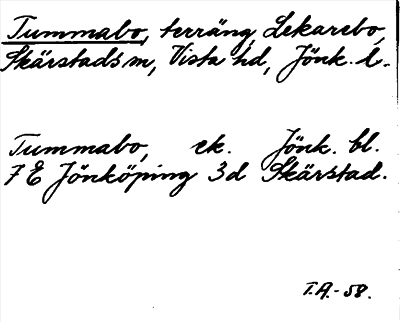 Tummabo, terräng, Lekarebo,
Skärstads sn, Vista hd, Jönk. l.
Tummabo, ek. Jönk. bl.
7 E Jönköping 3d Skärstad.
T.A.-58.